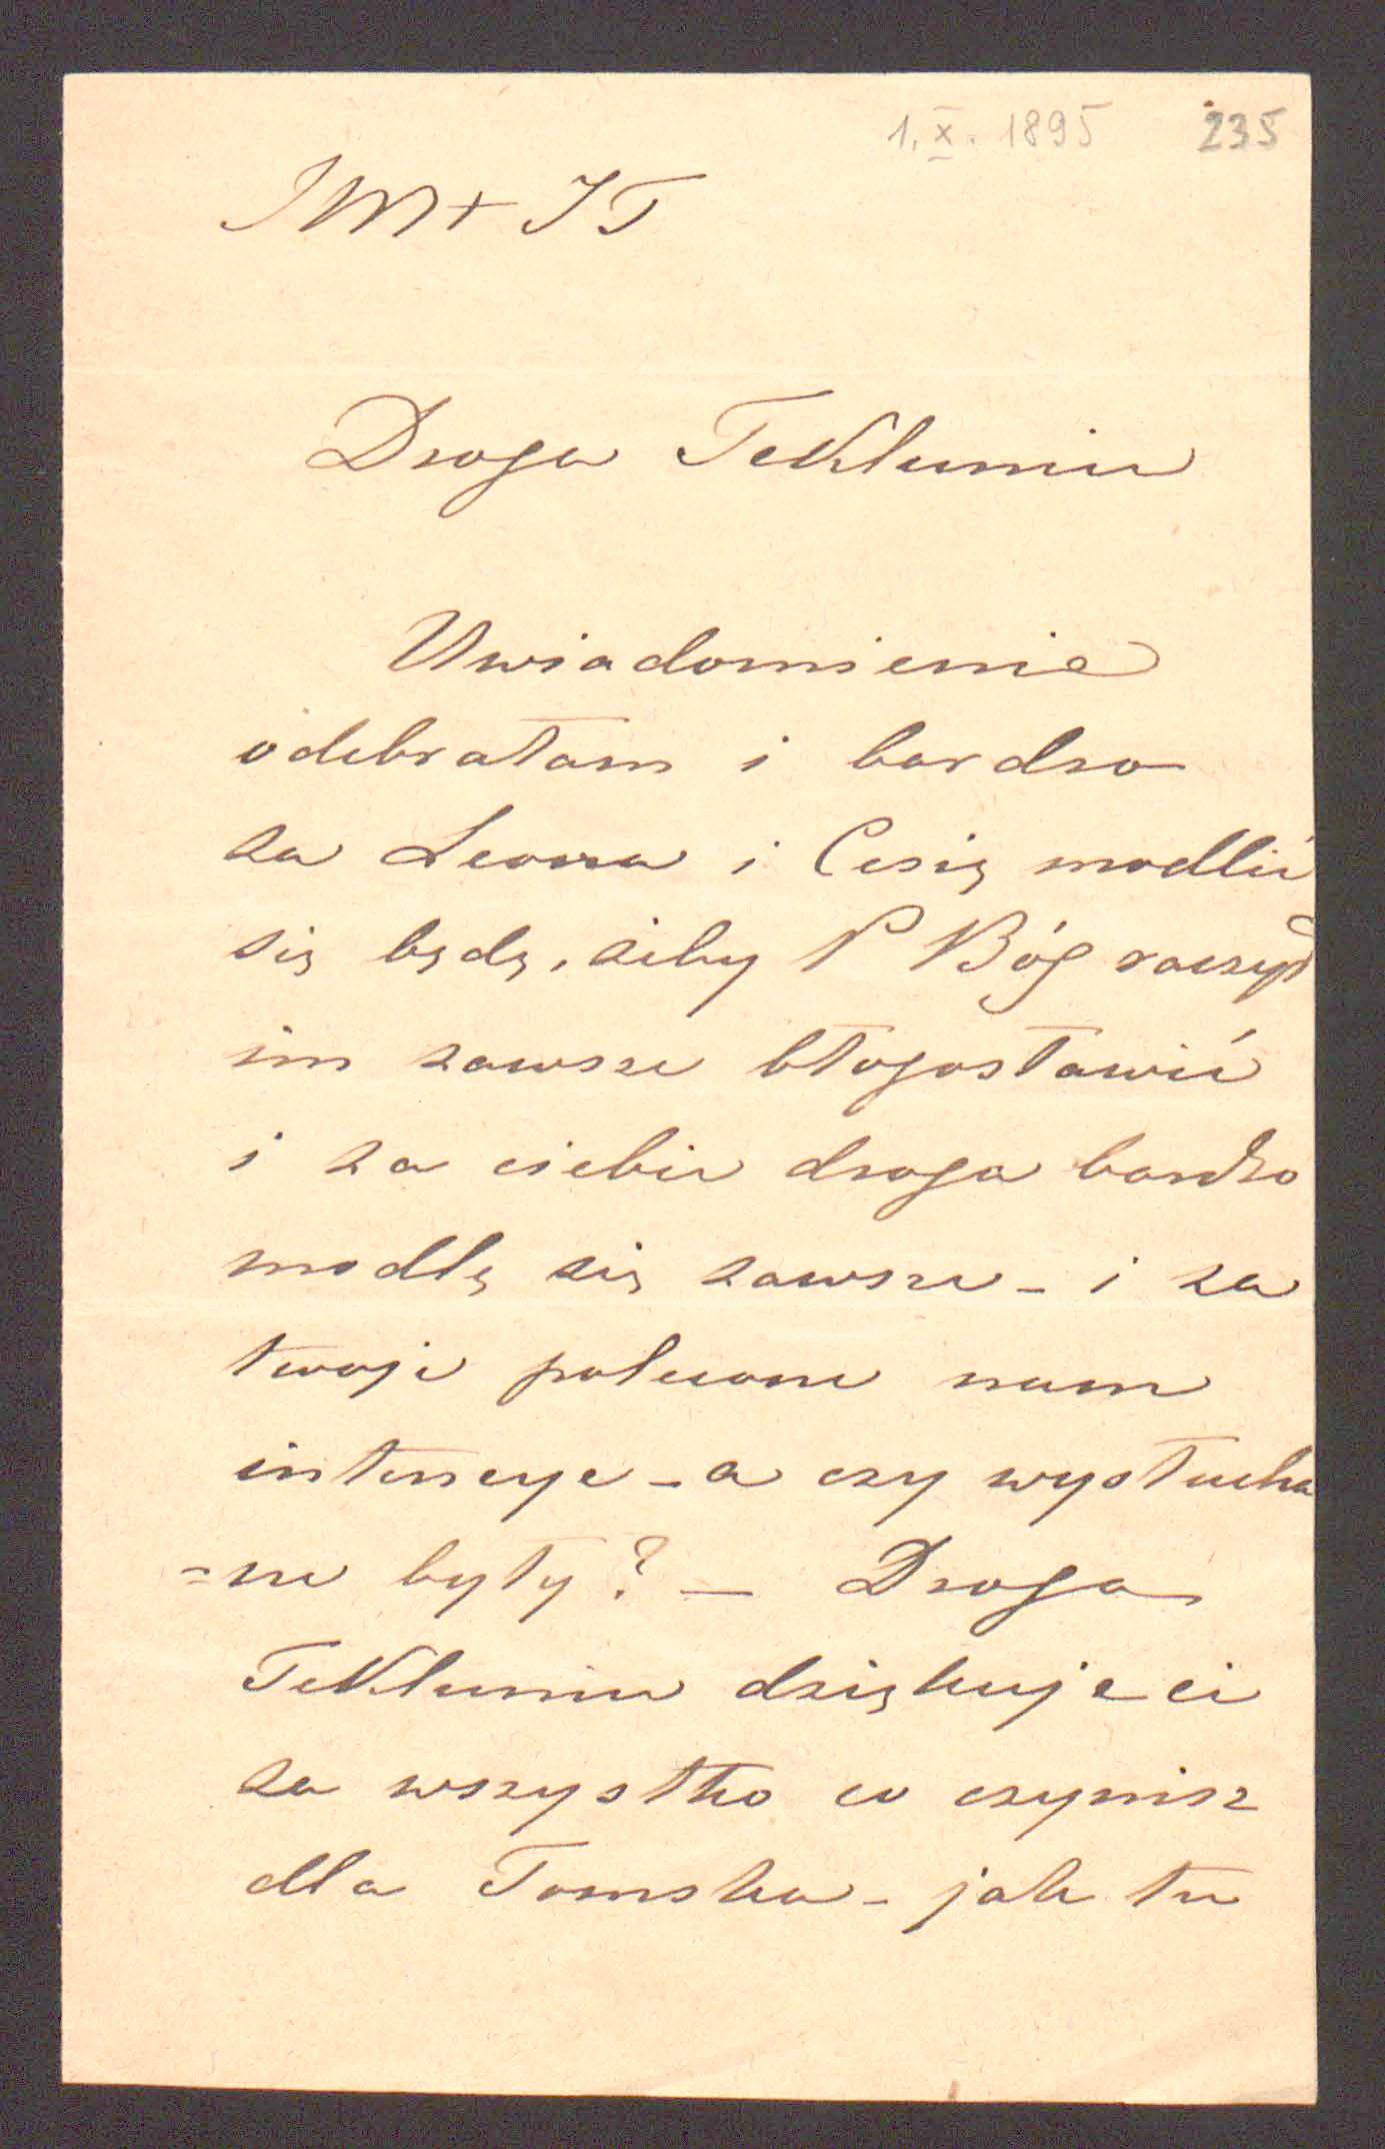 1. X. 1895 235
JM+JT
Droga Tekluniu
Uwiadomienie
odebrałam i bardzo
za Leona i Cesię modlić
się będę, żeby P Bóg raczył
im zawsze błogosławić
i za ciebie droga bardzo
modlę się zawsze - i za
twoje polecone nam
intencye - a czy wysłucha
=ne były? — Droga
Tekluniu dziękuje ci
za wszystko co czynisz
dla Tomska - jak tu